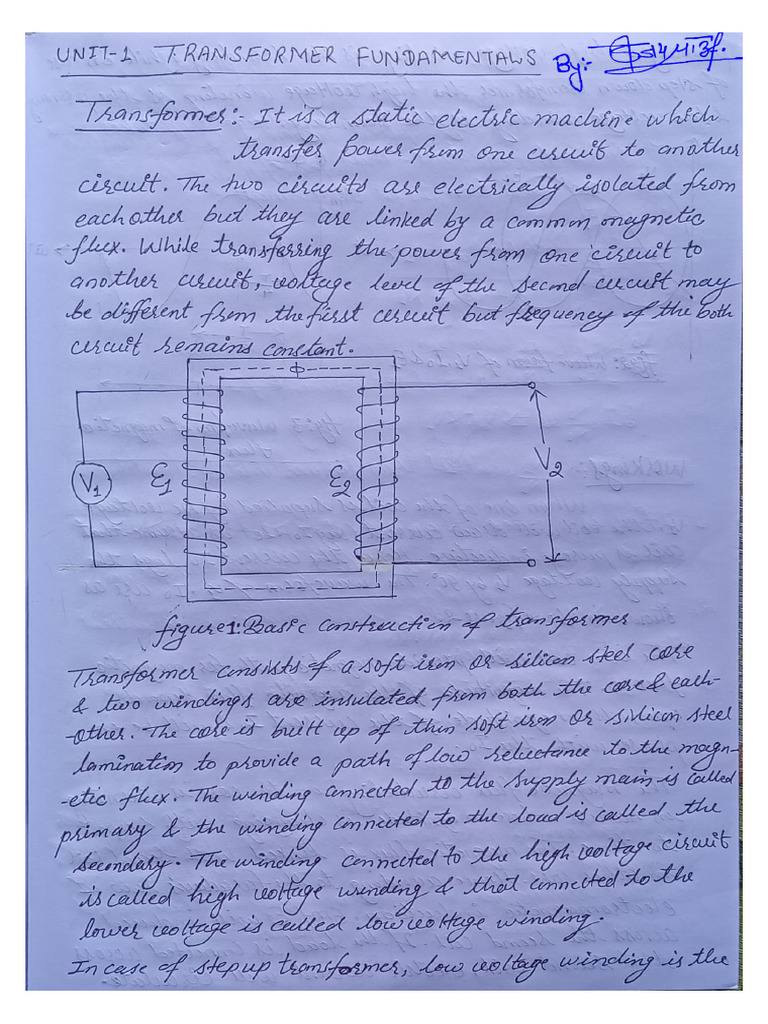 UNIT-1 TRANSFORMER FUNDAMENTALS By:-
Transformer:- It is a static electric machine which
transfer power from one circuit to another
circuit. The two circuits are electrically isolated from
each other but they are linked by a common magnetic
flux. While transferring the power from one circuit to
another circuit, voltage level of the second circuit may
be different from the first circuit but frequency of the both
circuit remains constant.
ϕ
V1 ε1 ε2 V2
figure1: Basic construction of transformer
Transformer consists of a soft iron or silicon steel core
& two windings are insulated from both the core & each-
-other. The core is built up of thin soft iron or silicon steel
lamination to provide a path of low reluctance to the magn-
-etic flux. The winding connected to the supply main is called
primary & the winding connected to the load is called the
secondary. The winding connected to the high voltage circuit
is called high voltage winding & that connected to the
lower voltage is called low voltage winding.
In case of step up transformer, low voltage winding is the